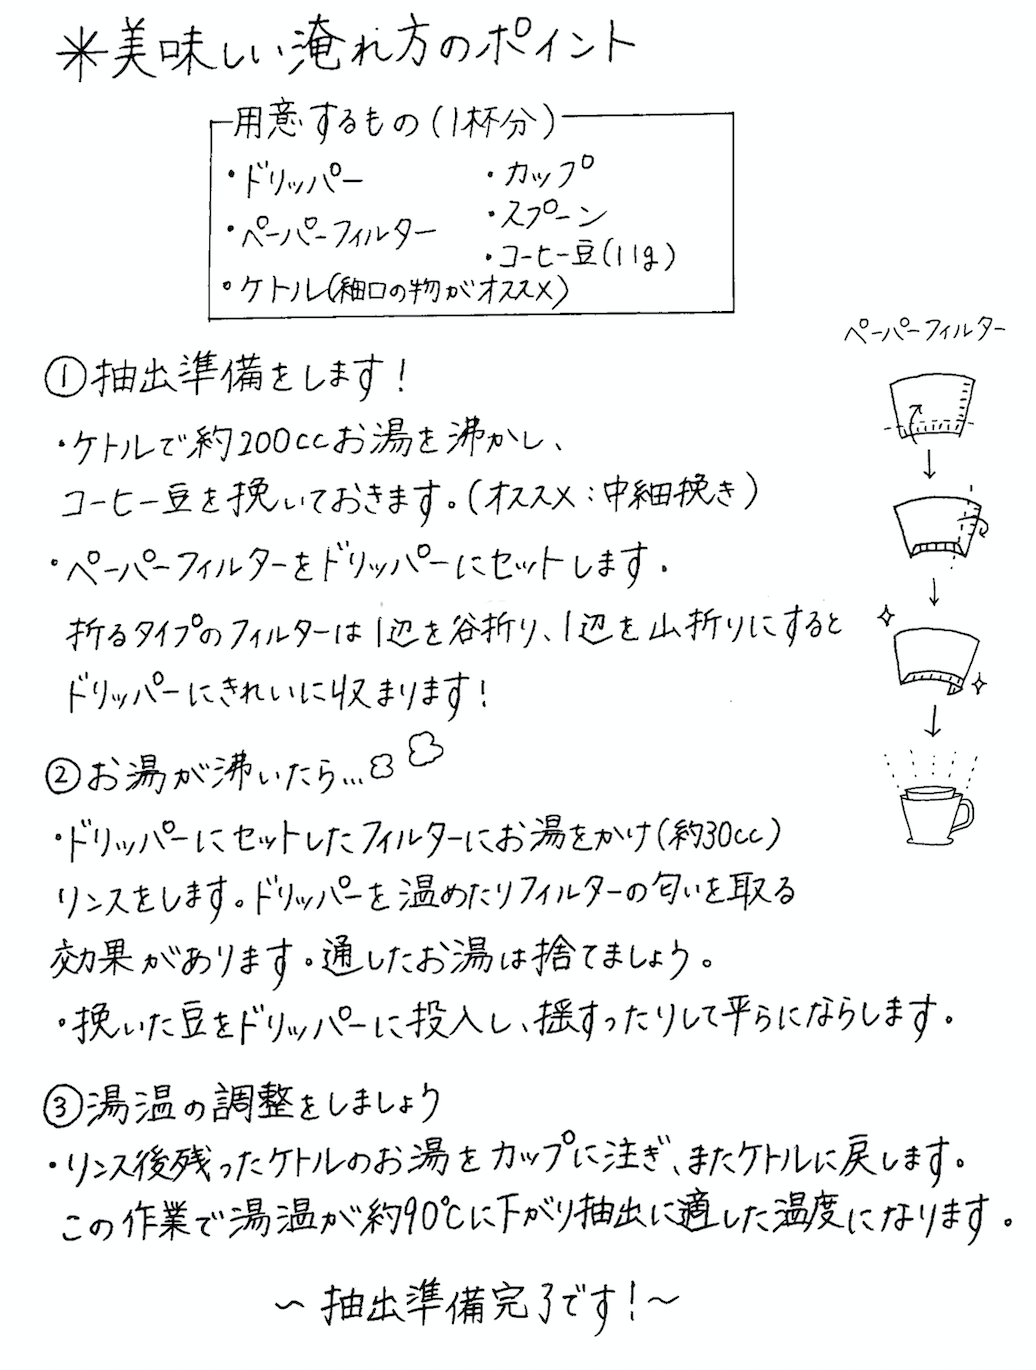 *美味しい淹れ方のポイント
用意するもの(1杯分)
・ドリッパー
・ペーパーフィルター
・ケトル(細口の物がオススメ)
・カップ
・スプーン
・コーヒー豆(11g)
①抽出準備をします!
・ケトルで約200ccお湯を沸かし、
コーヒー豆を挽いておきます。(オススメ:中細挽き)
・ペーパーフィルターをドリッパーにセットします.
折るタイプのフィルターは1辺を谷折り、1辺を山折りにすると
ドリッパーにきれいに収まります!
ペーパーフィルター
②お湯が沸いたら...
・ドリッパーにセットしたフィルターにお湯をかけ(約30cc)
リンスをします。ドリッパーを温めたりフィルターの匂いを取る
効果があります。通したお湯は捨てましょう。
・挽いた豆をドリッパーに投入し、揺すったりして平らにならします。
③湯温の調整をしましょう
・リンス後残ったケトルのお湯をカップに注ぎ、またケトルに戻します。
この作業で湯温が約90℃に下がり抽出に適した温度になります。
〜抽出準備完了です!〜